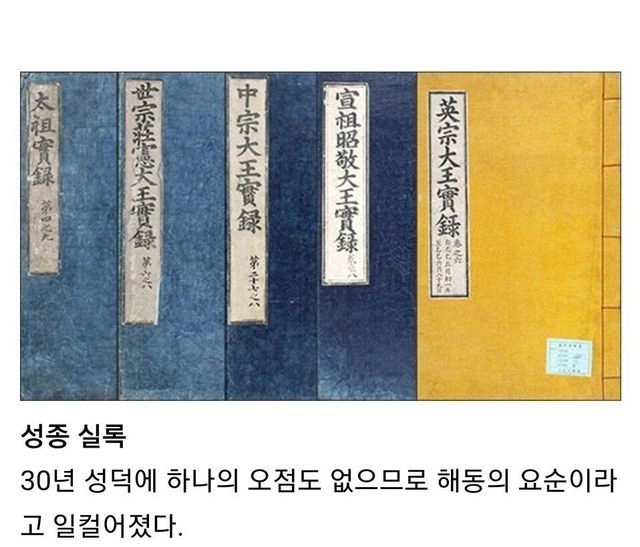 太祖實錄 第四之九
世宗莊憲大王實錄 第六之八
中宗大王實錄 第二十七之八
宣祖昭敬大王實錄
英宗大王實錄 卷之六
성종 실록
30년 성덕에 하나의 오점도 없으므로 해동의 요순이라
고 일컬어졌다.